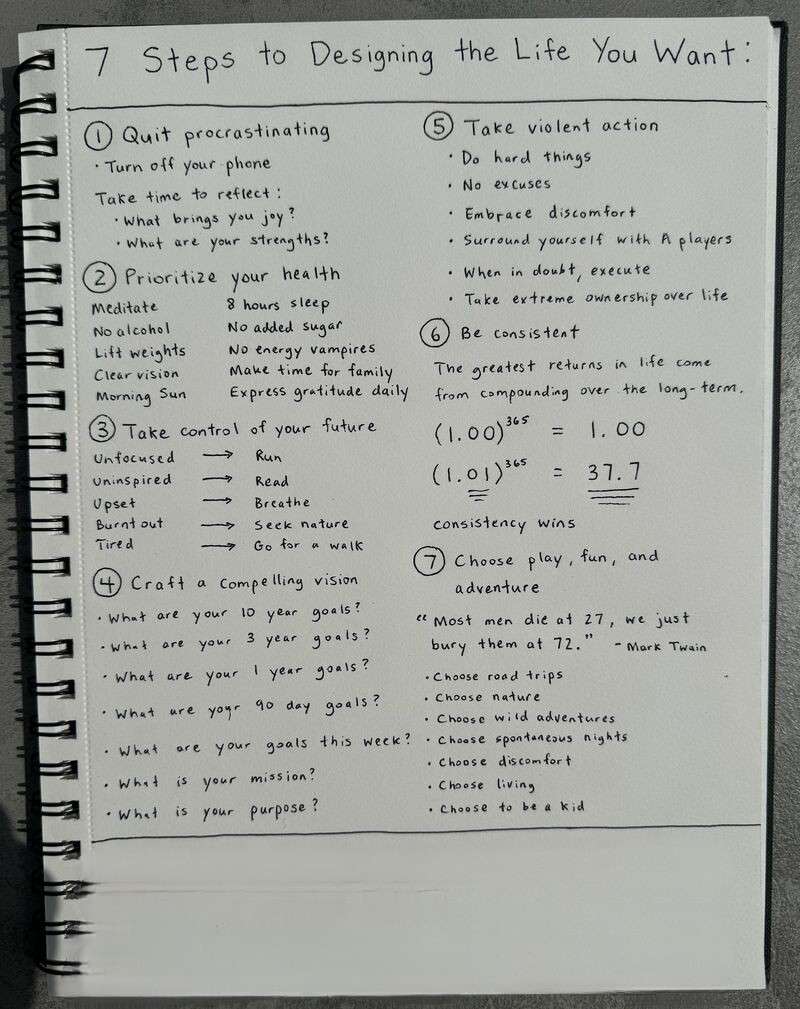 7 Steps to Designing the Life You Want:
① Quit procrastinating
• Turn off your phone
Take time to reflect:
• What brings you joy?
• What are your strengths?
② Prioritize your health
Meditate 8 hours sleep
No alcohol No added sugar
Lift weights No energy vampires
Clear vision Make time for family
Morning Sun Express gratitude daily
③ Take control of your future
Unfocused → Run
Uninspired → Read
Upset → Breathe
Burnt out → Seek nature
Tired → Go for a walk
④ Craft a compelling vision
• What are your 10 year goals?
• What are your 3 year goals?
• What are your 1 year goals?
• What are your 90 day goals?
• What are your goals this week?
• What is your mission?
• What is your purpose?
⑤ Take violent action
• Do hard things
• No excuses
• Embrace discomfort
• Surround yourself with A players
• When in doubt, execute
• Take extreme ownership over life
⑥ Be consistent
The greatest returns in life come
from compounding over the long-term.
(1.00)³⁶⁵ = 1.00
(1.01)³⁶⁵ = 37.7
consistency wins
⑦ Choose play, fun, and
adventure
"Most men die at 27, we just
bury them at 72." - Mark Twain
• Choose road trips
• Choose nature
• Choose wild adventures
• Choose spontaneous nights
• Choose discomfort
• Choose living
• Choose to be a kid